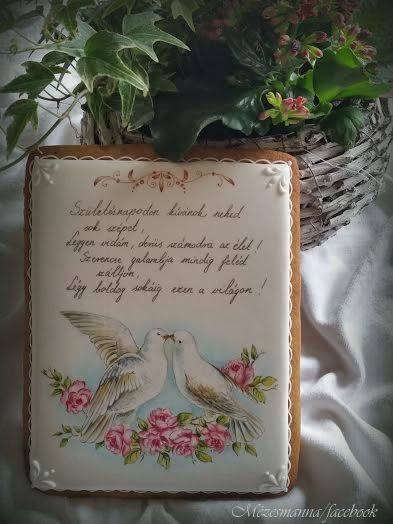 Születésnapodon kívánok neked
sok szépet,
Legyen vidám, derűs számodra az élet!
Szerencse galambja mindig feléd
szálljon,
Légy boldog sokáig ezen a világon!
Mézesmanna/facebook